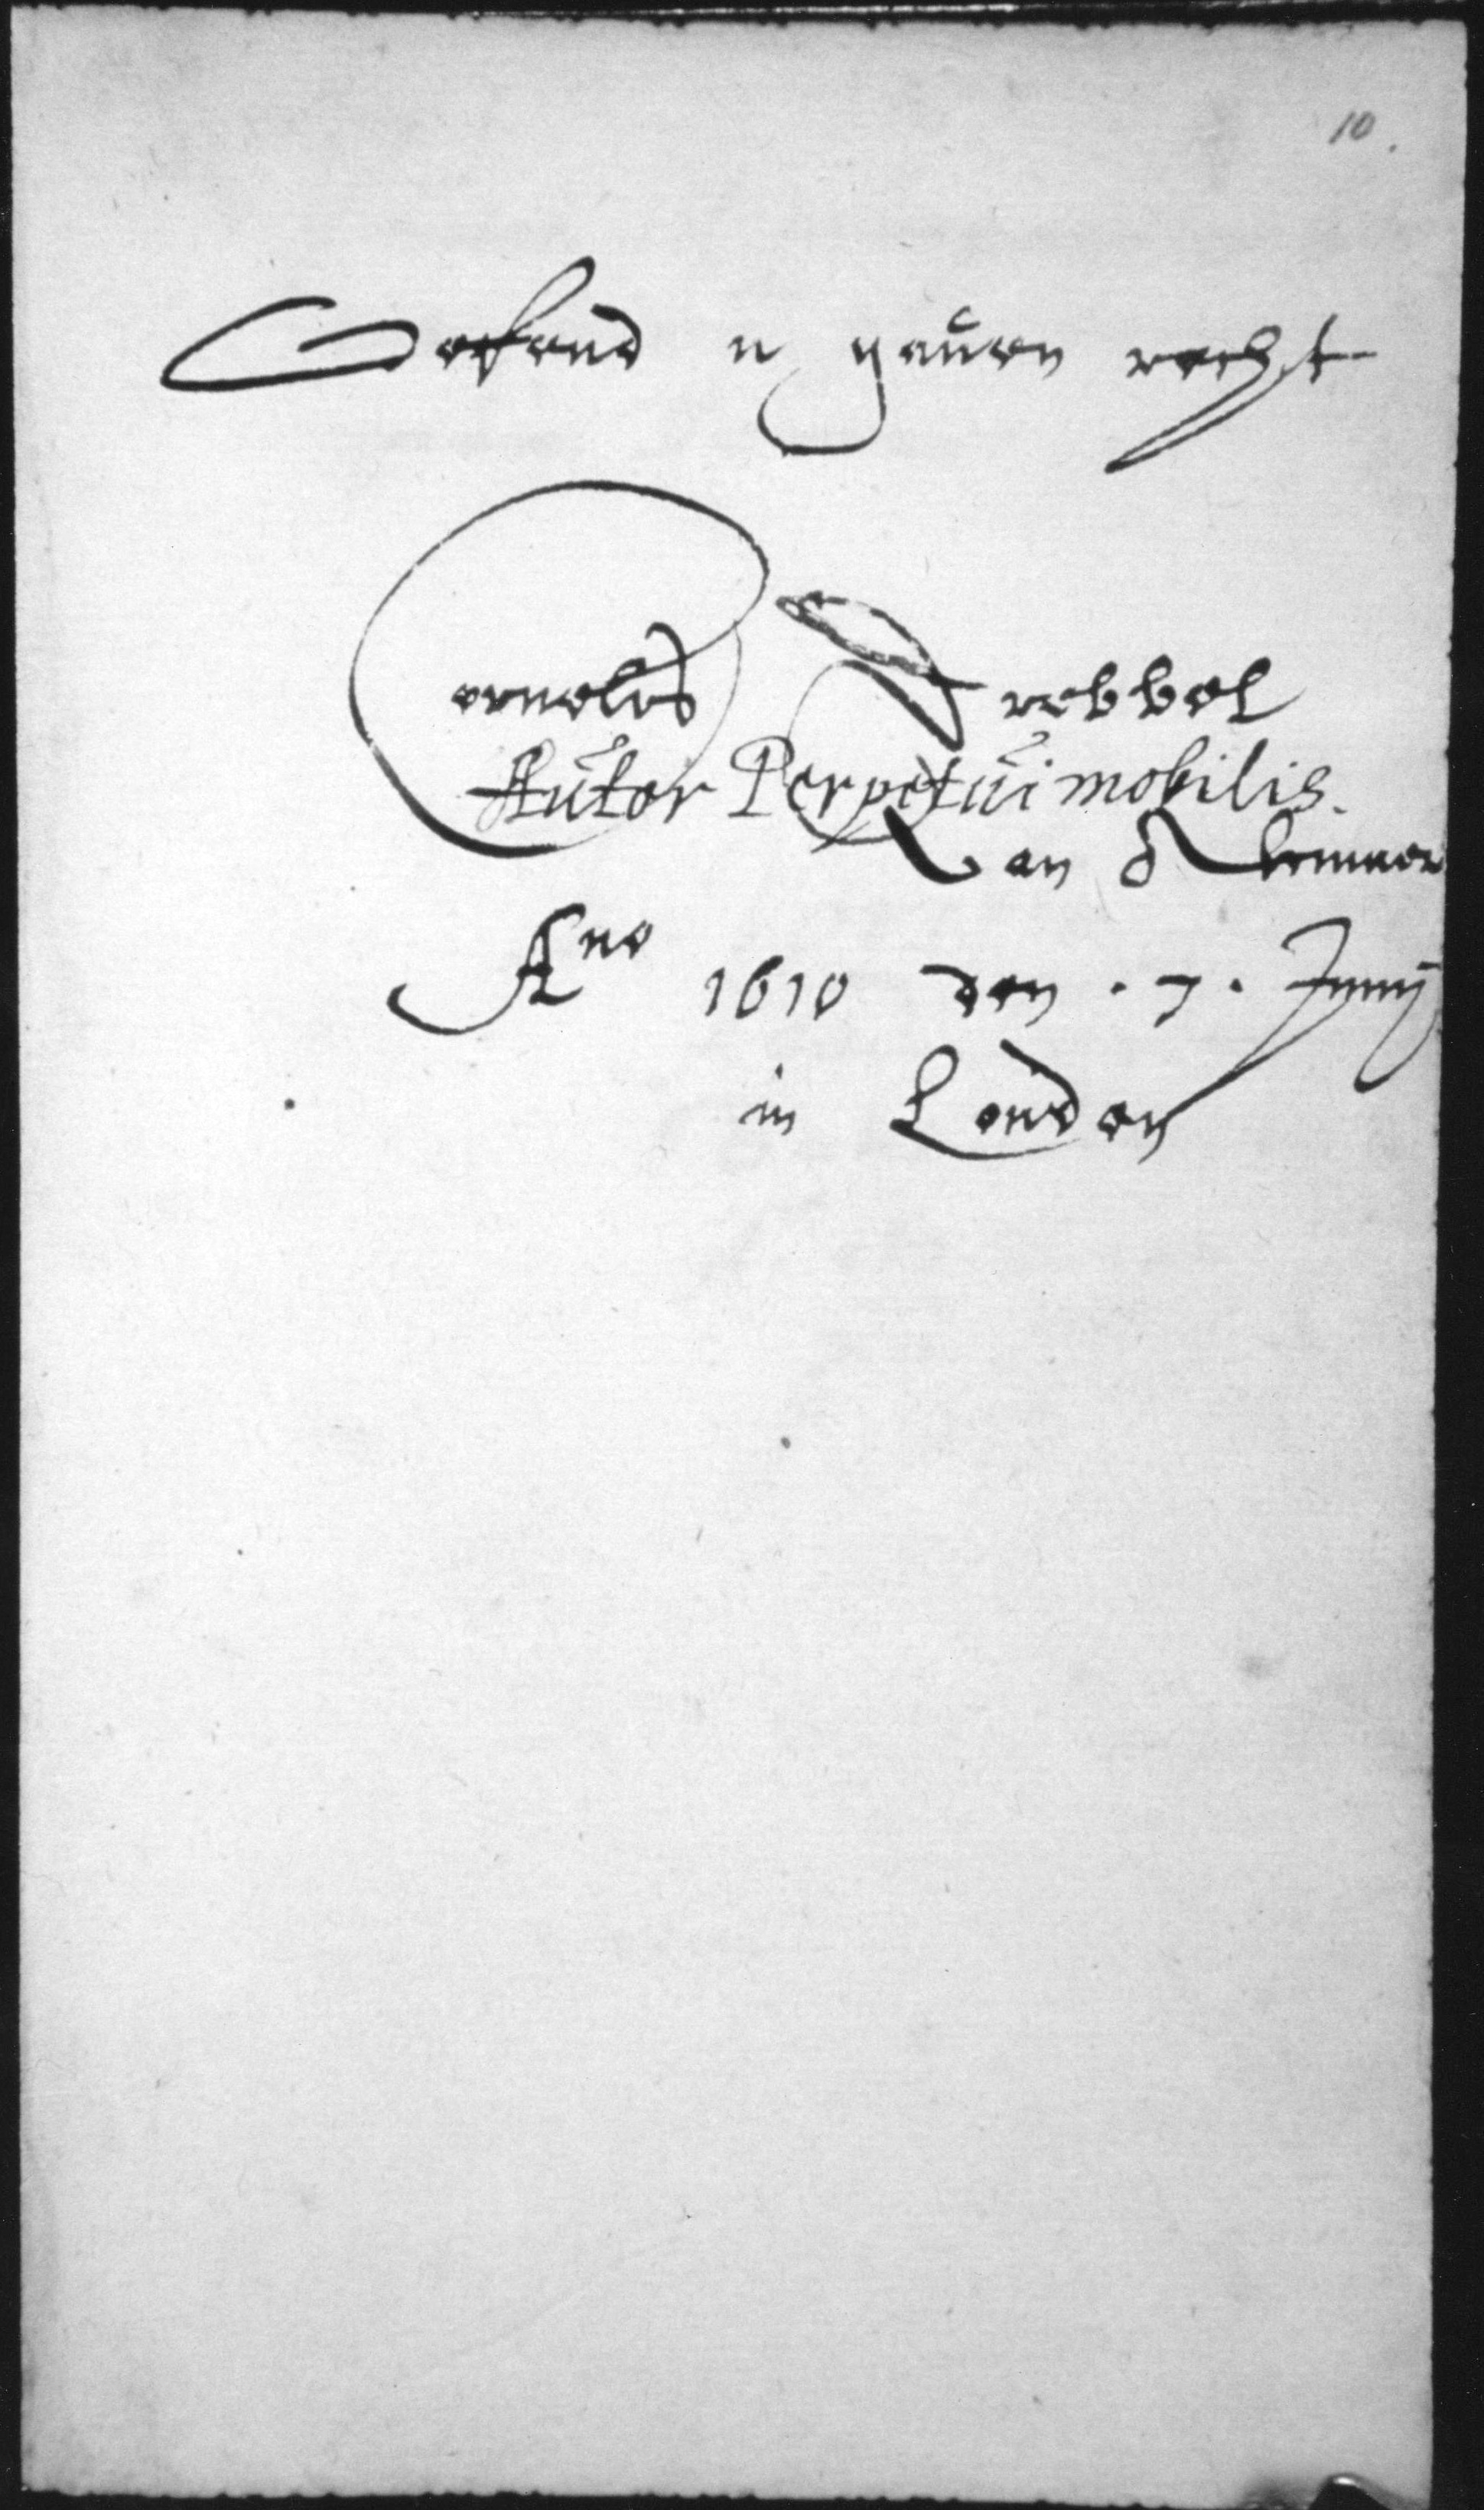 10.
Oefend u gauen recht
Cornelis Drebbel
Autor Perpetui mobilis.
van Alckmaer
Ano 1610 den . 7 . Junij
in Londen